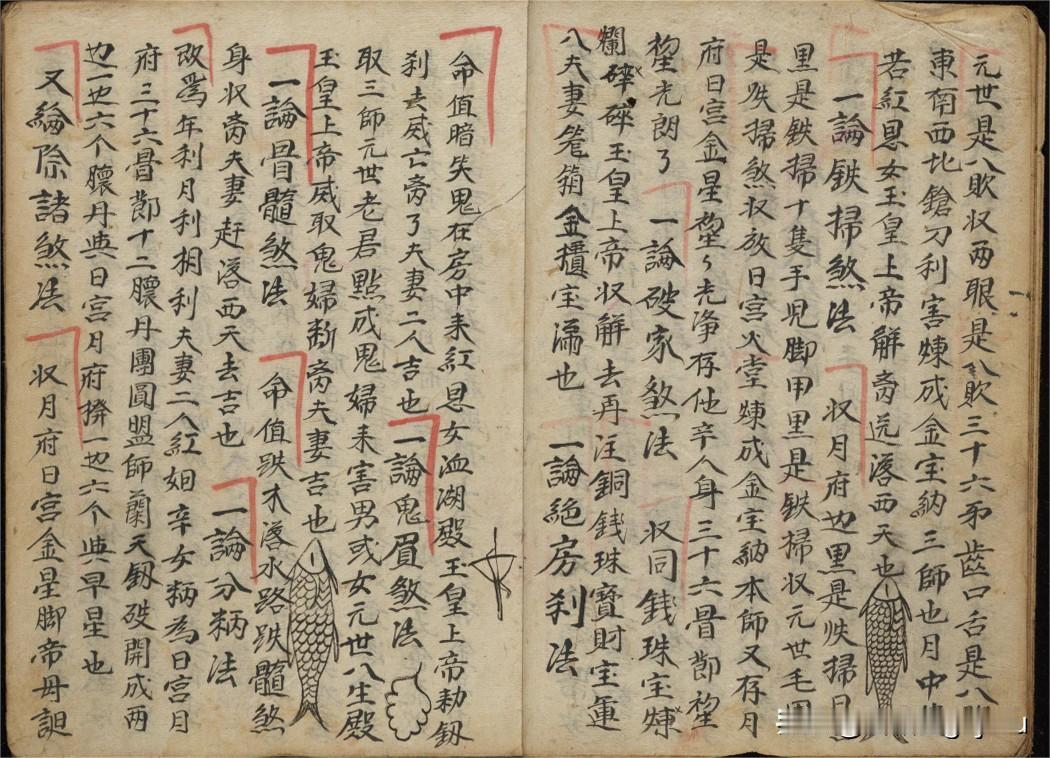 元世是八敗収两眼是八敗三十六牙齒口舌是八
東南西北鎗刀利害煉成金宝納三師也月中
若紅恩女玉皇上帝解脔远落西天也
一論鉄掃煞法 収月府也黑是鉄掃日
黑是鉄掃十隻手児脚甲黑是鉄掃収元世毛
是跌掃煞収放日宮火堂煉成金宝納本師又存月
府日宮金星犂々光净存他辛人身三十六骨節犂
犂光朗了 一論破家煞法 収同錢珠宝煉
爛碎碎玉皇上帝収解去再注銅錢珠寶財宝運
八夫妻篭箱金櫃宝滿也 一論絶房刹法
命值暗失鬼在房中来紅恩女血湖殿玉皇上帝勅釼
刹去威亡脔了夫妻二人吉也 一論鬼眉煞法
取三師元世老君點成鬼婦来害男或女元世八生殿
玉皇上帝威取鬼婦断脔夫妻吉也
一論骨髓煞法 命值跌木落水路跌髓煞
身収脔夫妻赶落西天去吉也 一論分柄法
改爲年利月利相利夫妻二人紅姐辛女柄為日宮月
府三十六骨節十二臔丹團圓盟師蘭天釼破開成两
边一边六个臔丹典日宮月府擠一边六个典早星也
又論除諸煞法 収月府日宮金星脚帝母詚